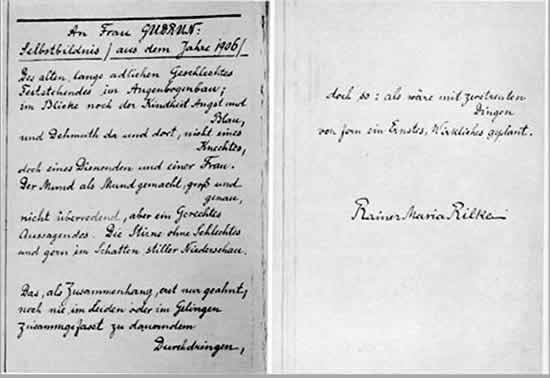 An Frau GUDRUN:
Selbstbildnis / aus dem Jahre 1906 /
Des alten, lange adlichen Geschlechtes
Feststehendes im Augenbogenbau;
im Blicke noch der Kindheit Angst und
Blau,
und Dehmuth da und dort, nicht eines
Knechtes,
doch eines Dienenden und einer Frau.
Der Mund als Mund gemacht, groß und
genau,
nicht überredend, aber ein Gerechtes
Aussagendes. Die Stirne ohne Schlechtes
und gern im Schatten stiller Niederschau.
Das, als Zusammenhang, erst nur geahnt,
noch nie im Leiden oder im Gelingen
zusammgefasst zu dauerndem
Durchdringen,
doch so: als wäre mit zerstreuten
Dingen
von fern ein Ernstes, Wirkliches geplant.
Rainer Maria Rilke